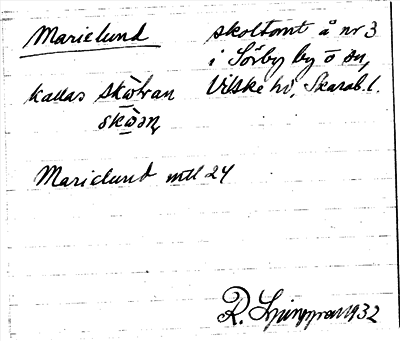 Marielund
skoltomt å nr 3
i Sörby by ö ån,
Vilske hd, Skarab. l.
kallas skòtran
skòəṇ
Marielund mtl 24
R. Ljunggren 1932